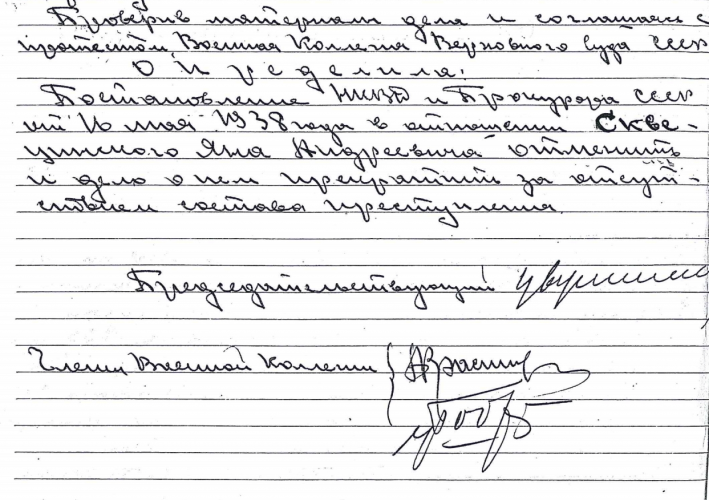 Проверив материалы дела и соглашаясь с
протестом, Военная Коллегия Верховного Суда СССР
определила:
Постановление НКВД и Прокурора СССР
от 16 мая 1938 года в отношении Скве-
цинского Яна Андреевича отменить
и дело о нем прекратить за отсут-
ствием состава преступления.
Председательствующий
Члены Военной Коллегии